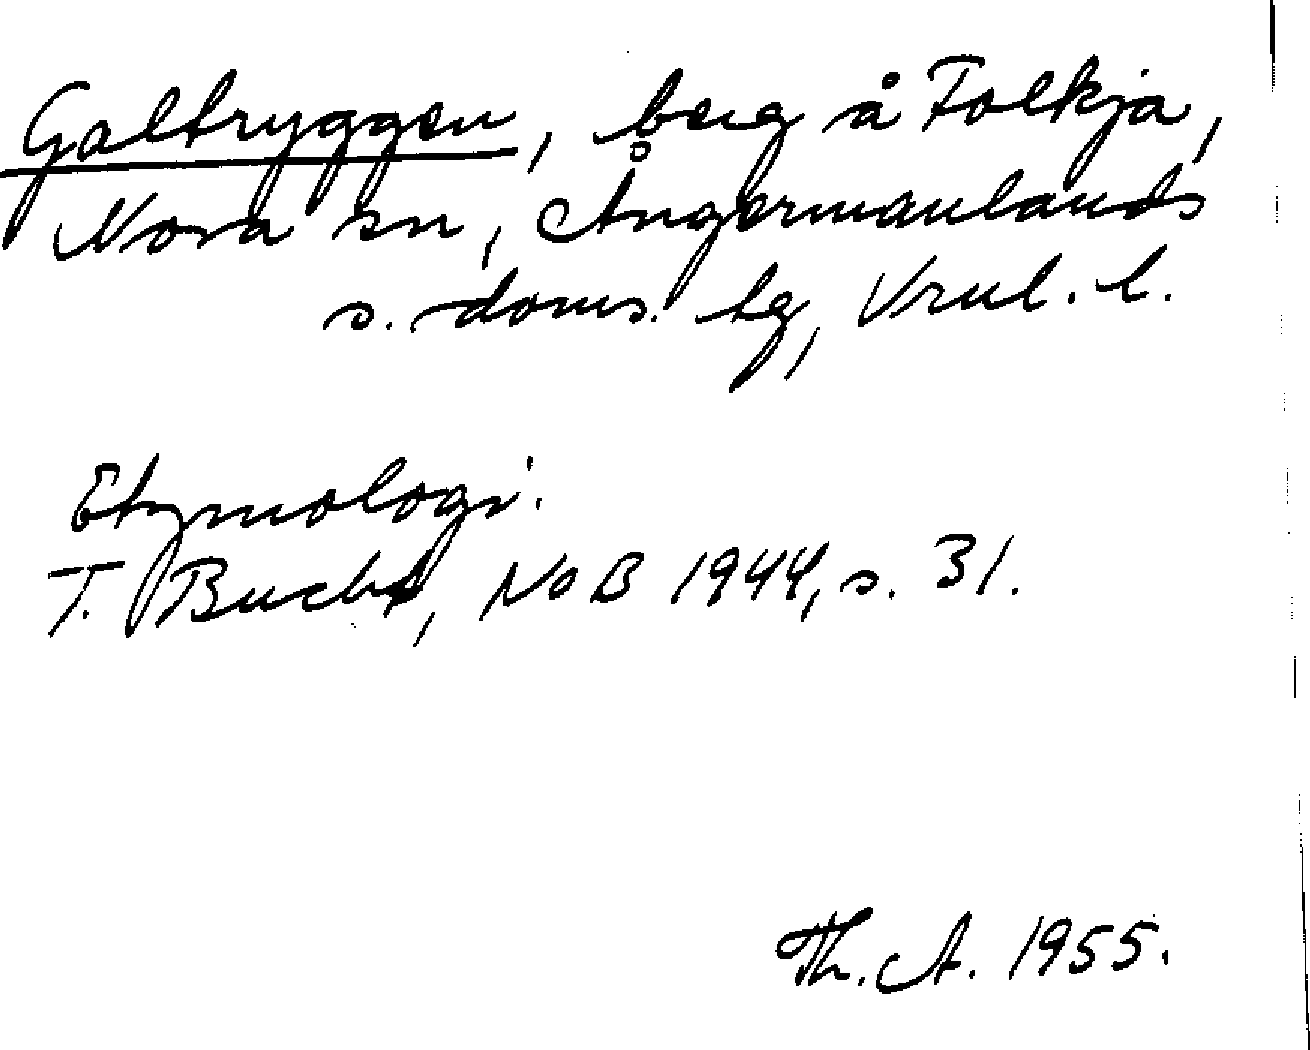 Galtryggen, berg å Folkja,
Nora sn, Ångermanlands
s. doms. tg, Vrnl. l.
Etymologi:
T. Bucht, NoB 1944, s. 31.
Th. A. 1955.